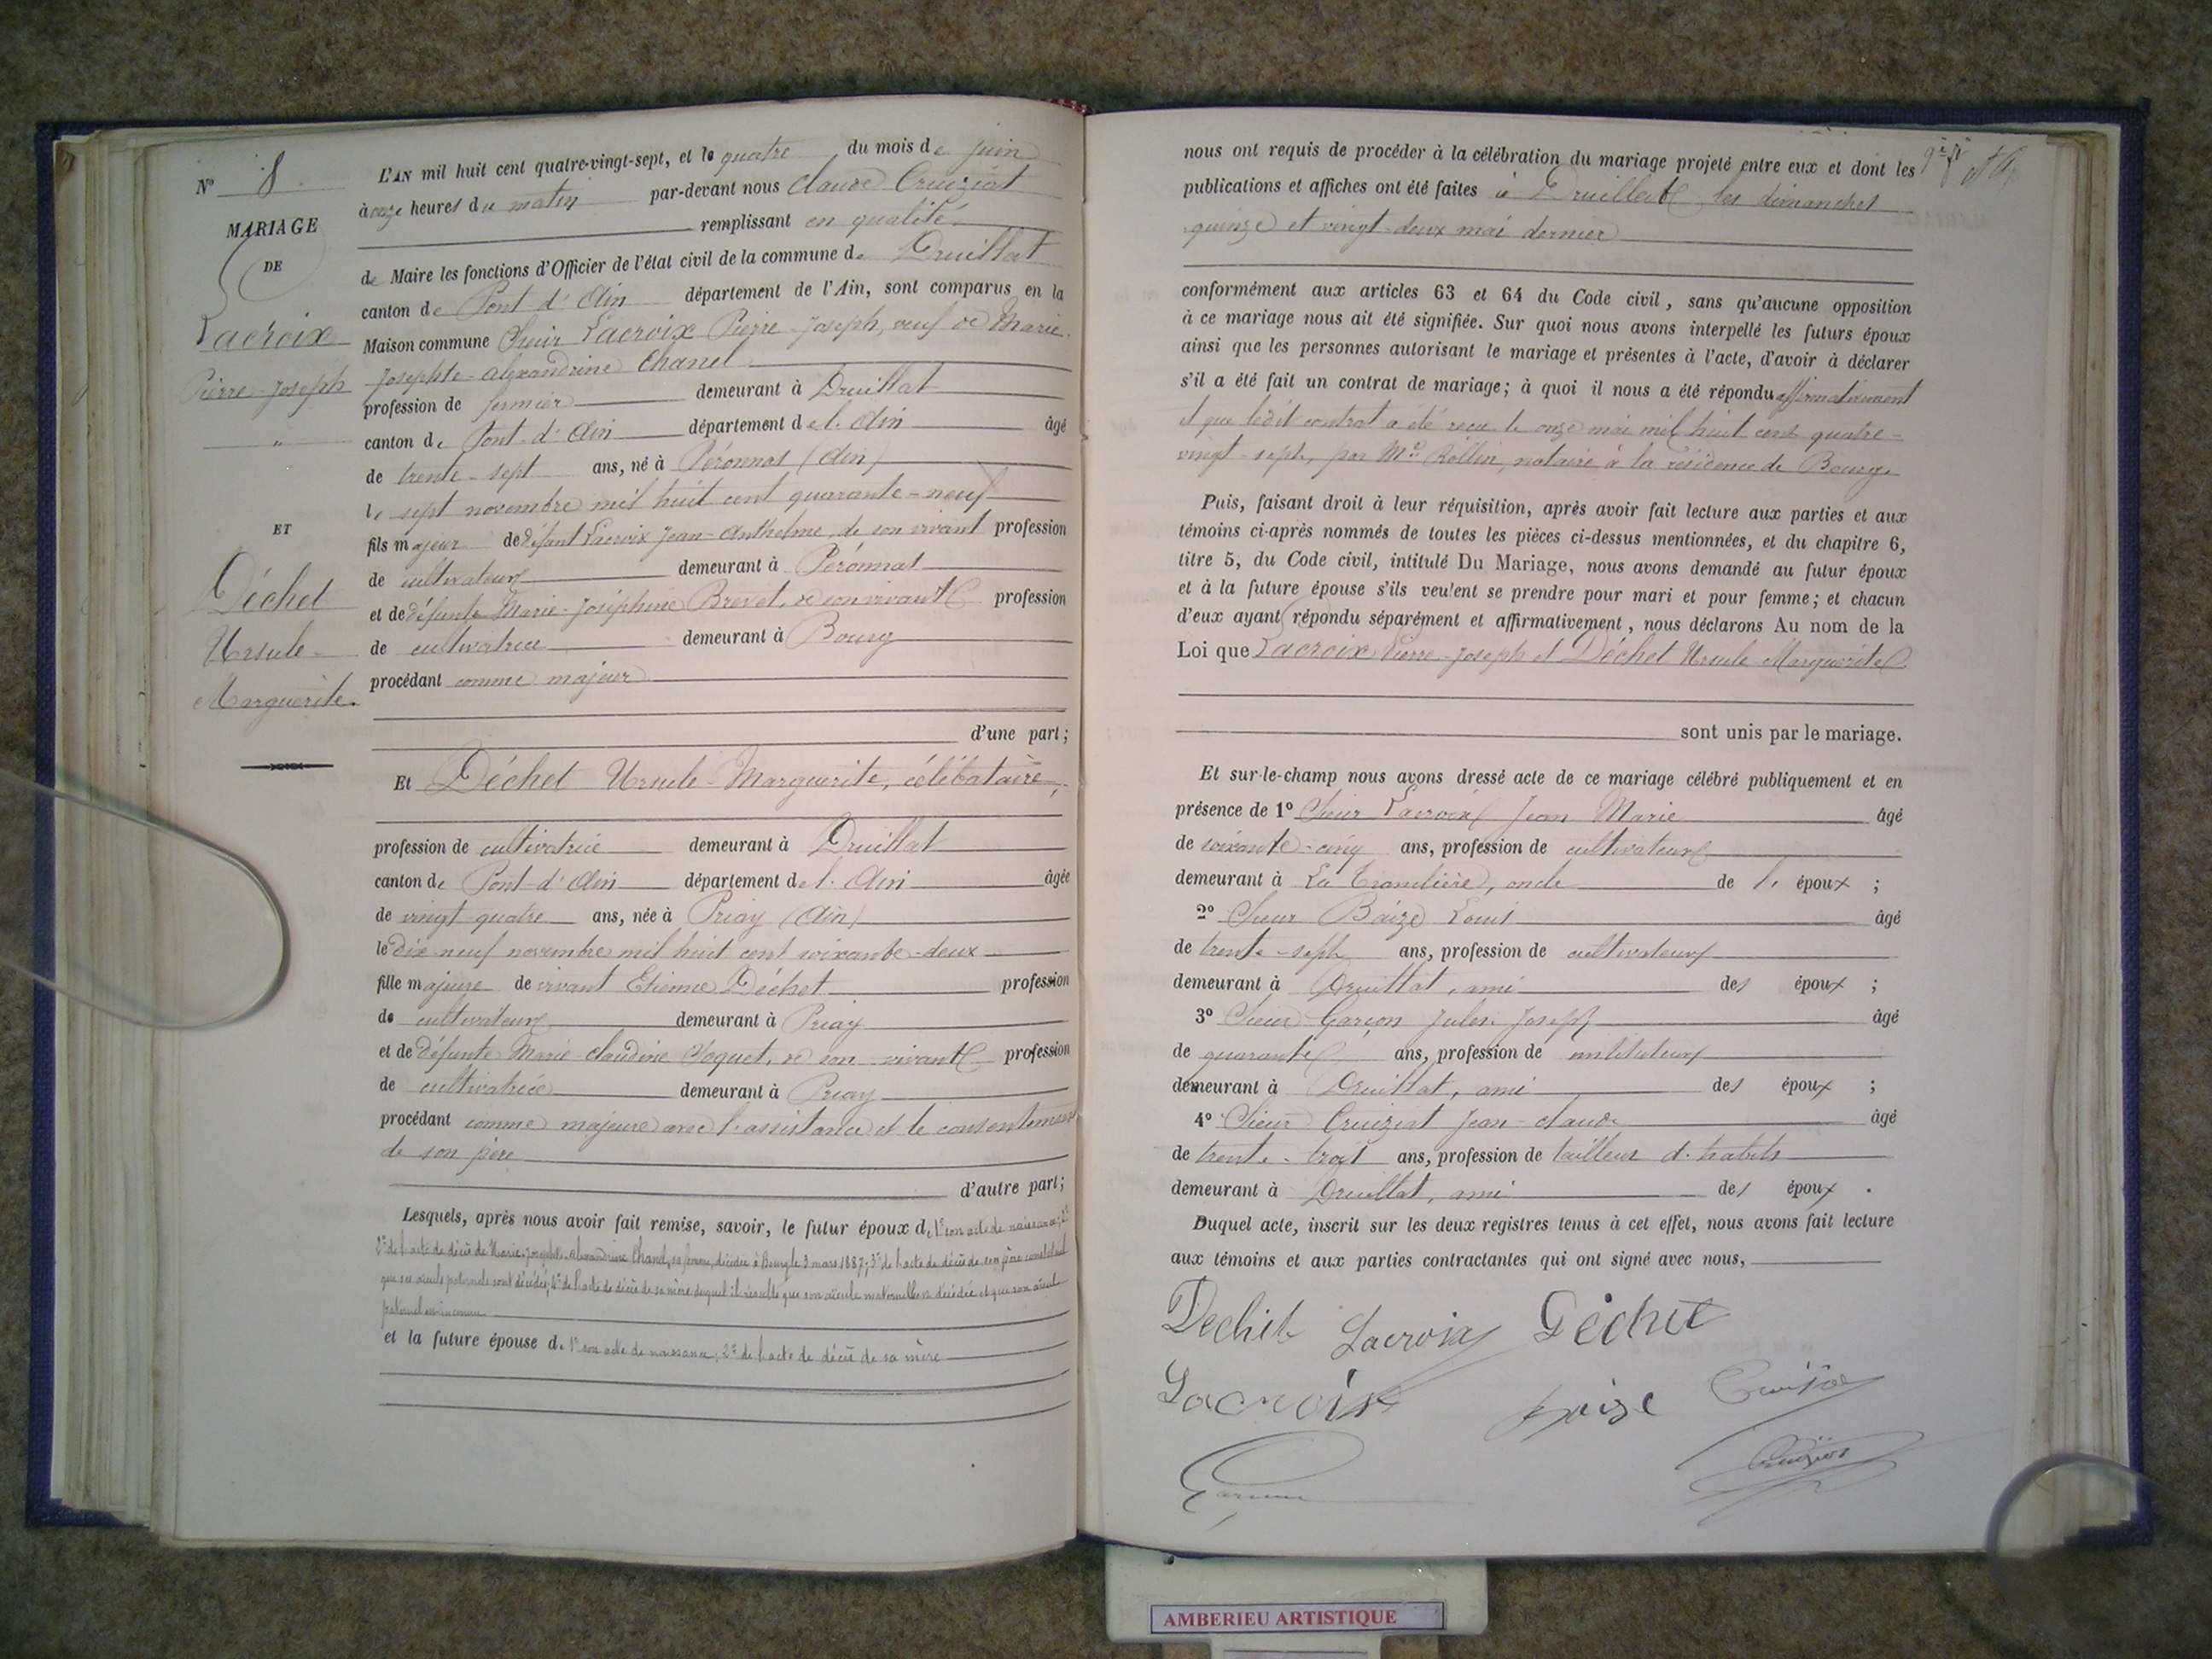 N° 8
MARIAGE
DE
Lacroix
Pierre-Joseph
"
ET
Déchet
Ursule-
Marguerite.
L'AN mil huit cent quatre-vingt-sept, et le quatre du mois de juin
à onze heures du matin par-devant nous Claude Cruiziat
remplissant en qualité
de Maire les fonctions d'Officier de l'état civil de la commune de Druillat
canton de Pont d'Ain département de l'Ain, sont comparus en la
Maison commune Sieur Lacroix Pierre-Joseph, veuf de Marie-
Josephte-Alexandrine Chanel
profession de fermier demeurant à Druillat
canton de Pont-d'Ain département de l'Ain âgé
de trente-sept ans, né à Péronnas (Ain)
le sept novembre mil huit cent quarante-neuf
fils majeur de défunt Lacroix Jean-Anthelme, de son vivant profession
de cultivateur demeurant à Péronnas
et de défunte Marie-Joséphine Brevet, de son vivant profession
de cultivatrice demeurant à Bourg
procédant comme majeur
d'une part;
Et Déchet Ursule-Marguerite, célibataire,
profession de cultivatrice demeurant à Druillat
canton de Pont-d'Ain département de l'Ain âgée
de vingt-quatre ans, née à Priay (Ain)
le dix-neuf novembre mil huit cent soixante-deux
fille majeure de vivant Etienne Déchet profession
de cultivateur demeurant à Priay
et de défunte Marie-Claudine Joguet, de son vivant profession
de cultivatrice demeurant à Priay
procédant comme majeure avec l'assistance et le consentement
de son père
d'autre part;
Lesquels, après nous avoir fait remise, savoir, le futur époux de 1° son acte de naissance;
2° de l'acte de décès de Marie-Josephte-Alexandrine Chanel, sa femme, décédée à Bourg le 3 mars 1887; 3° de l'acte de décès de son père constatant
que ses aïeuls paternels sont décédés; 4° de l'acte de décès de sa mère duquel il résulte que son aïeule maternelle est décédée et que son aïeul
paternel est inconnu
et la future épouse de 1° son acte de naissance; 2° de l'acte de décès de sa mère
nous ont requis de procéder à la célébration du mariage projeté entre eux et dont les
publications et affiches ont été faites à Druillat les dimanches
quinze et vingt-deux mai dernier
conformément aux articles 63 et 64 du Code civil, sans qu'aucune opposition
à ce mariage nous ait été signifiée. Sur quoi nous avons interpellé les futurs époux
ainsi que les personnes autorisant le mariage et présentes à l'acte, d'avoir à déclarer
s'il a été fait un contrat de mariage; à quoi il nous a été répondu affirmativement
et que ledit contrat a été reçu le onze mai mil huit cent quatre-
vingt-sept, par Me Rollin, notaire à la résidence de Bourg.
Puis, faisant droit à leur réquisition, après avoir fait lecture aux parties et aux
témoins ci-après nommés de toutes les pièces ci-dessus mentionnées, et du chapitre 6,
titre 5, du Code civil, intitulé Du Mariage, nous avons demandé au futur époux
et à la future épouse s'ils veulent se prendre pour mari et pour femme; et chacun
d'eux ayant répondu séparément et affirmativement, nous déclarons Au nom de la
Loi que Lacroix Pierre-Joseph et Déchet Ursule Marguerite
sont unis par le mariage.
Et sur-le-champ nous avons dressé acte de ce mariage célébré publiquement et en
présence de 1° Sieur Lacroix Jean Marie âgé
de soixante-cinq ans, profession de cultivateur
demeurant à La Tranclière, oncle de l' époux ;
2° Sieur Baize Louis âgé
de trente-sept ans, profession de cultivateur
demeurant à Druillat, ami des époux ;
3° Sieur Garçon Jules Joseph âgé
de quarante ans, profession de instituteur
demeurant à Druillat, ami des époux ;
4° Sieur Cruiziat Jean-Claude âgé
de trente-trois ans, profession de tailleur d'habits
demeurant à Druillat, ami des époux .
Duquel acte, inscrit sur les deux registres tenus à cet effet, nous avons fait lecture
aux témoins et aux parties contractantes qui ont signé avec nous,
Dechet Lacroix Déchet
Lacroix Baize
Cruiziat
AMBERIEU ARTISTIQUE